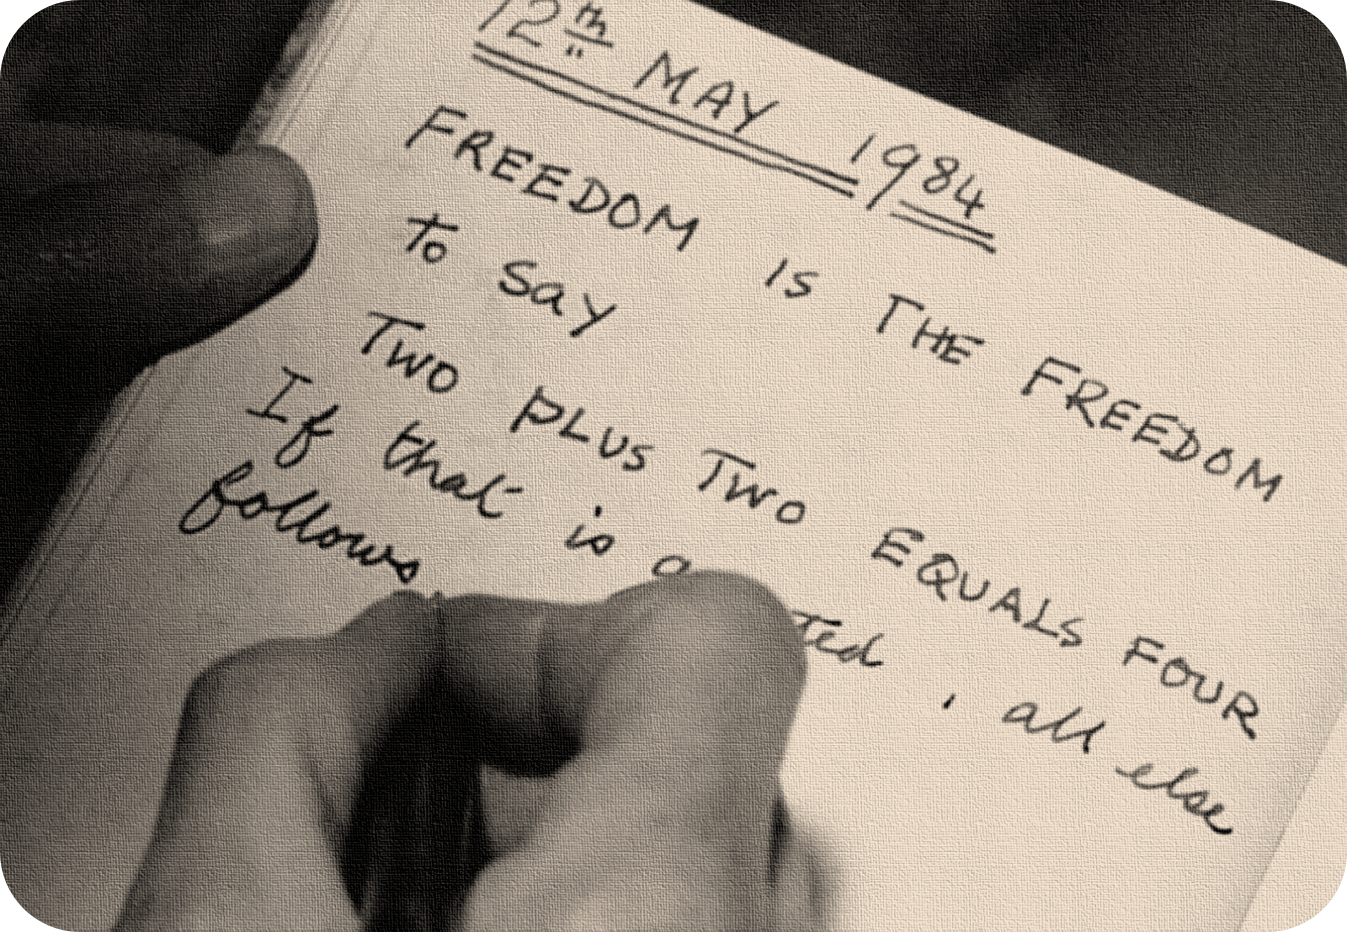 12th MAY 1984
FREEDOM IS THE FREEDOM
to say
TWO PLUS TWO EQUALS FOUR
If that is , all else
follows